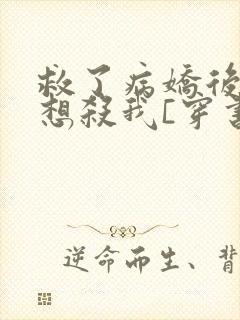 救了病嬌後
想殺我[穿書
逆命而生、背